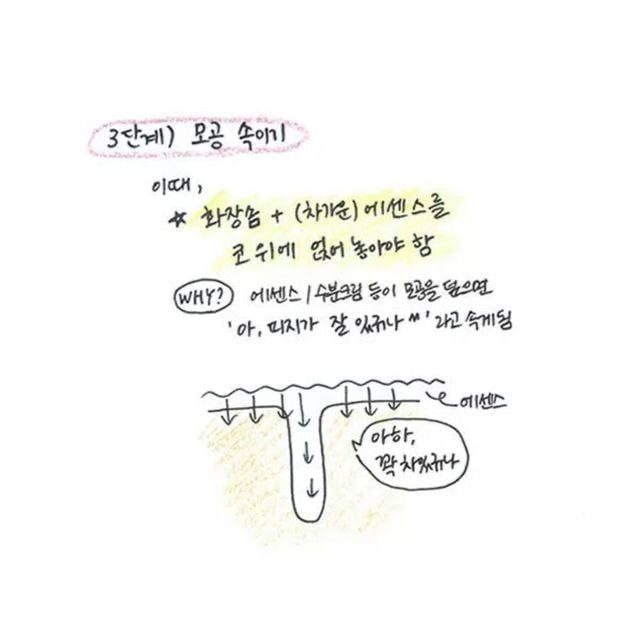 3단계) 모공 속이기
이때,
☆ 화장솜 + (차가운) 에센스를
코 위에 얹어 놓아야 함
WHY? 에센스 / 수분크림 등이 모공을 덮으면
'아, 피지가 잘 있구나 ^^' 라고 속게됨
에센스
아하,
꽉 차있구나